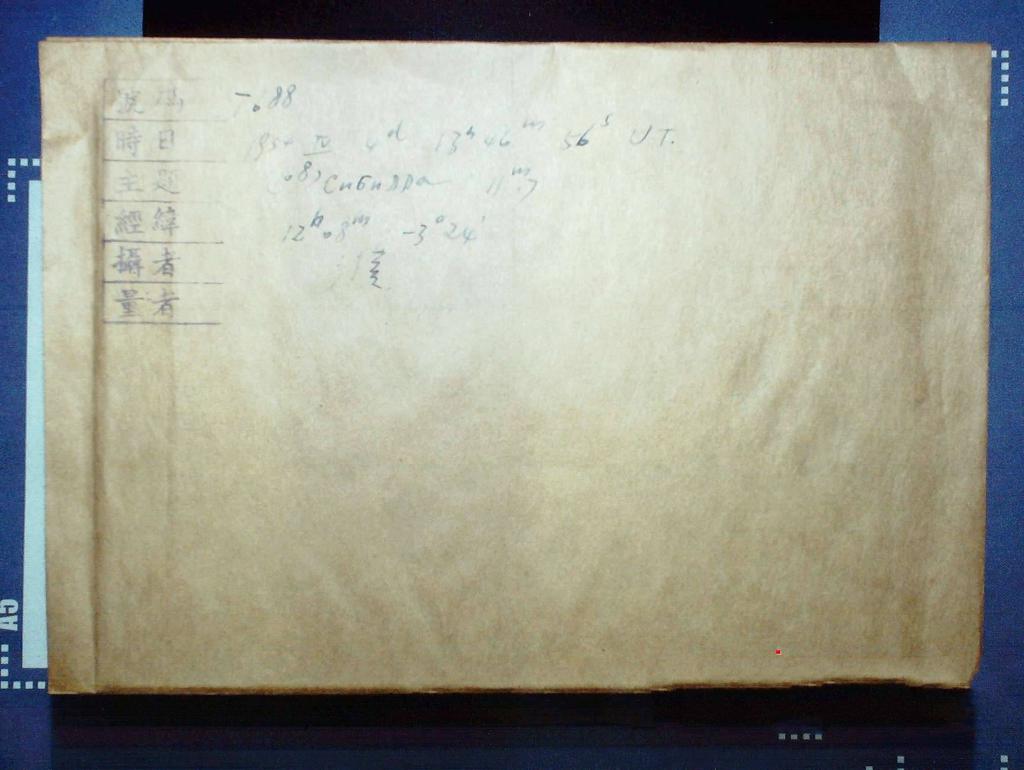 號 7088
日時 1954 IV 4ᵈ 13ʰ46ᵐ 56ˢ U T.
主題 Сибилла 11ᵐ.7
經緯 12ʰ08ᵐ -3°24'
攝者
量者
A5